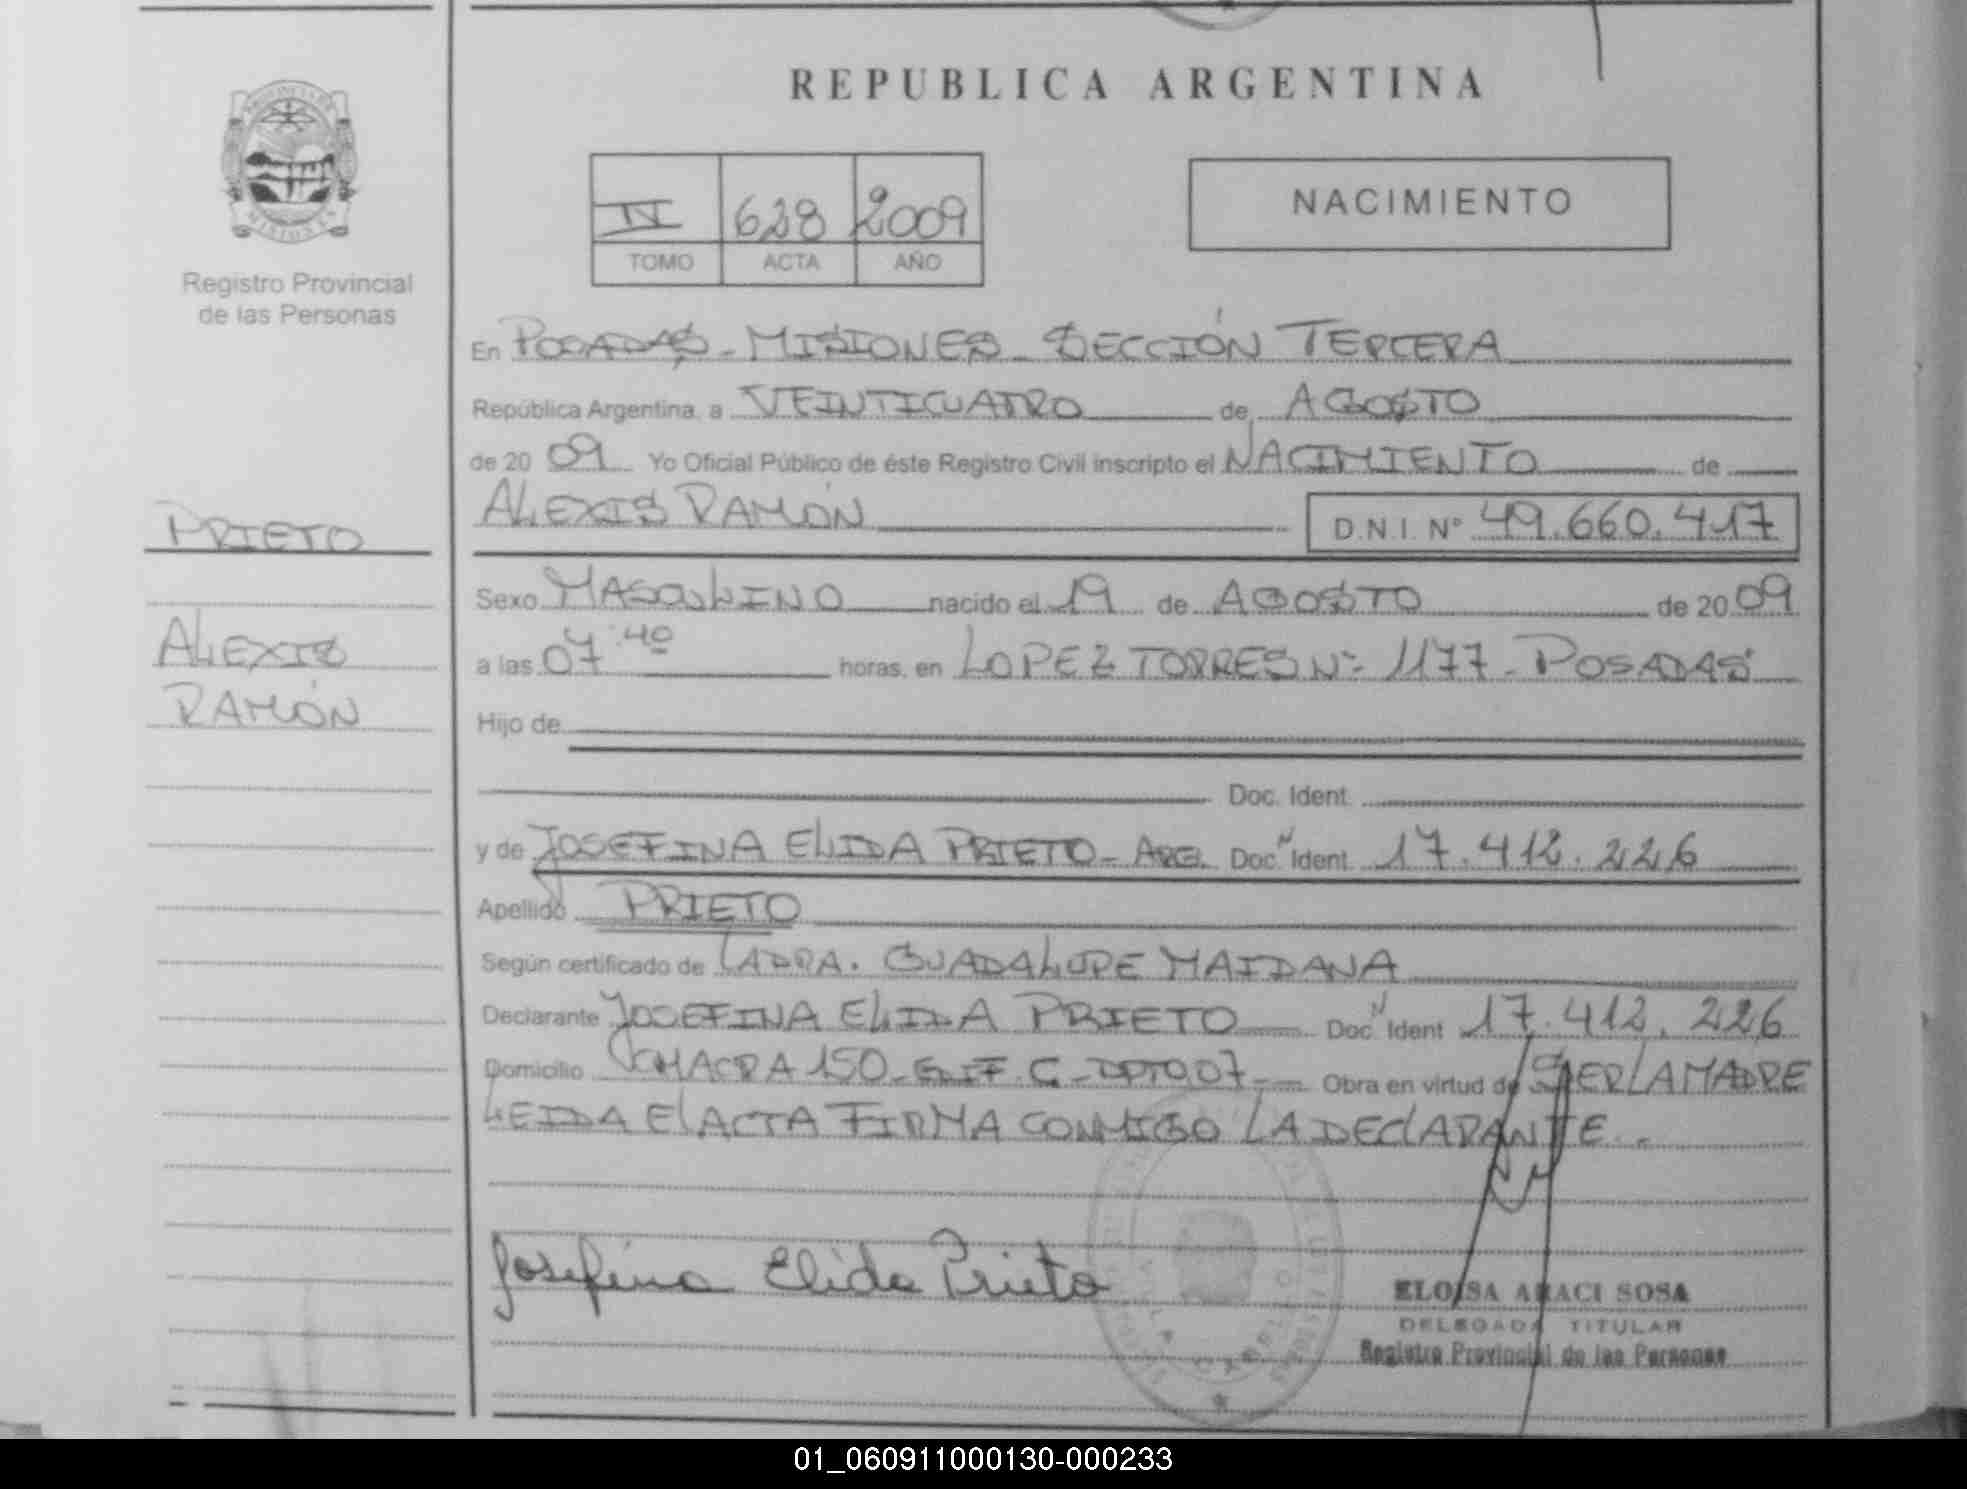 REPUBLICA ARGENTINA
NACIMIENTO
II 628 2009
TOMO ACTA AÑO
Registro Provincial
de las Personas
En POSADAS - MISIONES - SECCIÓN TERCERA
República Argentina, a VEINTICUATRO de AGOSTO
de 20 09 Yo Oficial Público de éste Registro Civil inscripto el NACIMIENTO de
ALEXIS RAMÓN D.N.I. N° 49.660.417
PRIETO
ALEXIS
RAMÓN
Sexo MASCULINO nacido el 19 de AGOSTO de 20 09
a las 07:40 horas, en LOPEZ TORRES N° 1177 - POSADAS
Hijo de
Doc. Ident.
y de JOSEFINA ELIDA PRIETO - ARG. Doc. N Ident. 17.412.226
Apellido PRIETO
Según certificado de LA DRA. GUADALUPE MAIDANA
Declarante JOSEFINA ELIDA PRIETO Doc. N Ident 17.412.226
Domicilio CHACRA 150 - EDIF. C - DPTO 07 - Obra en virtud de SER LA MADRE
LEIDA EL ACTA FIRMA CONMIGO LA DECLARANTE. -
Josefina Elida Prieto
ELOISA ARACI SOSA
DELEGADA TITULAR
Registro Provincial de las Personas
01_060911000130-000233